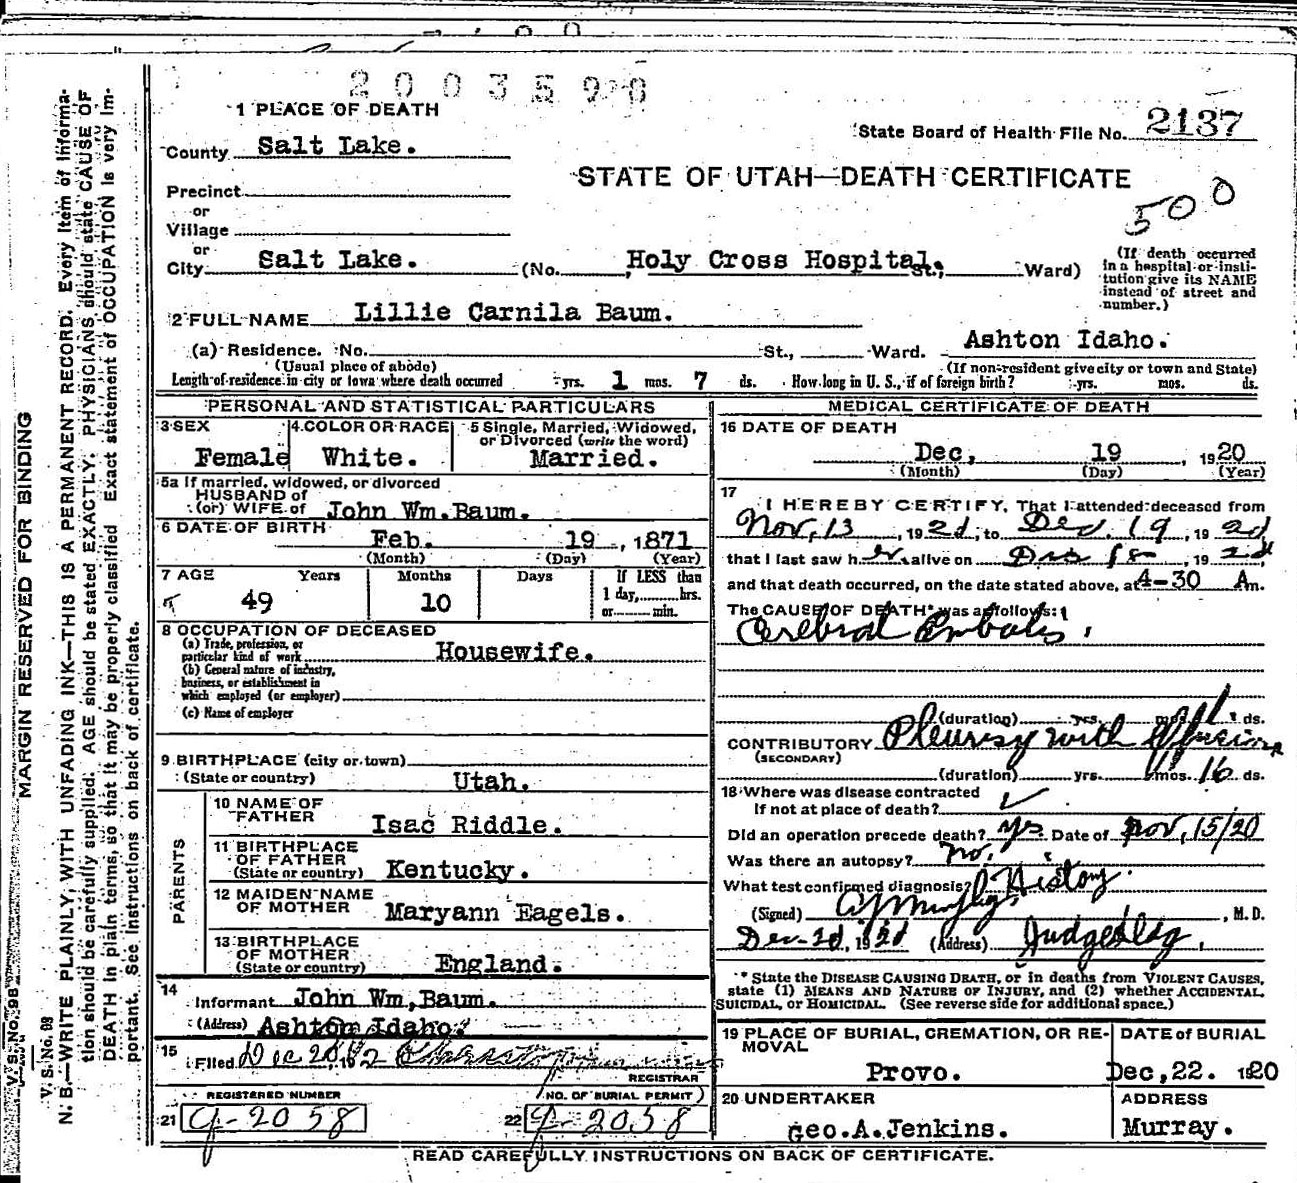 2003598
1 PLACE OF DEATH
State Board of Health File No. 2137
County Salt Lake.
STATE OF UTAH—DEATH CERTIFICATE
Precinct
500
or
Village
or
City Salt Lake. (No. Holy Cross Hospital. St.; Ward)
(If death occurred in a hospital or institution give its NAME instead of street and number.)
2 FULL NAME Lillie Carnila Baum.
(a) Residence. No. St., Ward. Ashton Idaho.
(Usual place of abode) (If non-resident give city or town and State)
Length of residence in city or town where death occurred yrs. 1 mos. 7 ds. How long in U. S., if of foreign birth? yrs. mos. ds.
PERSONAL AND STATISTICAL PARTICULARS
3 SEX 4 COLOR OR RACE 5 Single, Married, Widowed, or Divorced (write the word)
Female White. Married.
5a If married, widowed, or divorced
HUSBAND of
(or) WIFE of John Wm.Baum.
6 DATE OF BIRTH Feb. 19, 1871
(Month) (Day) (Year)
7 AGE Years Months Days If LESS than
49 10 1 day, hrs.
or min.
8 OCCUPATION OF DECEASED
(a) Trade, profession, or
particular kind of work Housewife.
(b) General nature of industry,
business, or establishment in
which employed (or employer)
(c) Name of employer
9 BIRTHPLACE (city or town)
(State or country) Utah.
PARENTS
10 NAME OF
FATHER Isac Riddle.
11 BIRTHPLACE
OF FATHER
(State or country) Kentucky.
12 MAIDEN NAME
OF MOTHER Maryann Eagels.
13 BIRTHPLACE
OF MOTHER
(State or country) England.
14
Informant John Wm,Baum.
(Address) Ashton Idaho.
15
Filed Dec 20, 192
REGISTRAR
REGISTERED NUMBER NO. OF BURIAL PERMIT
21 g-2058 22 g-2058
MEDICAL CERTIFICATE OF DEATH
16 DATE OF DEATH
Dec, 19, 1920
(Month) (Day) (Year)
17
I HEREBY CERTIFY, That I attended deceased from
Nov, 13, 1920, to Dec. 19, 1920,
that I last saw her alive on Dec 18, 1920,
and that death occurred, on the date stated above, at 4-30 A m.
The CAUSE OF DEATH* was as follows:
Cerebral Embolis,
(duration) yrs. mos. 1 ds.
CONTRIBUTORY Pleurisy with Effusion
(SECONDARY)
(duration) yrs. 1 mos. 16 ds.
18 Where was disease contracted
If not at place of death?
Did an operation precede death? Yes Date of Nov, 15/20
Was there an autopsy? no.
What test confirmed diagnosis? History
(Signed) , M. D.
Dec-20, 1920 (Address) Judge Bldg,
* State the DISEASE CAUSING DEATH, or in deaths from VIOLENT CAUSES,
state (1) MEANS AND NATURE OF INJURY, and (2) whether ACCIDENTAL,
SUICIDAL, or HOMICIDAL. (See reverse side for additional space.)
19 PLACE OF BURIAL, CREMATION, OR RE-
MOVAL DATE of BURIAL
Provo. Dec,22. 1920
20 UNDERTAKER ADDRESS
Geo.A.Jenkins. Murray.
READ CAREFULLY INSTRUCTIONS ON BACK OF CERTIFICATE.
MARGIN RESERVED FOR BINDING
V. S. No. 98
N. B.—WRITE PLAINLY, WITH UNFADING INK—THIS IS A PERMANENT RECORD. Every item of informa-
tion should be carefully supplied. AGE should be stated EXACTLY. PHYSICIANS should state CAUSE OF
DEATH in plain terms, so that it may be properly classified. Exact statement of OCCUPATION is very im-
portant. See instructions on back of certificate.